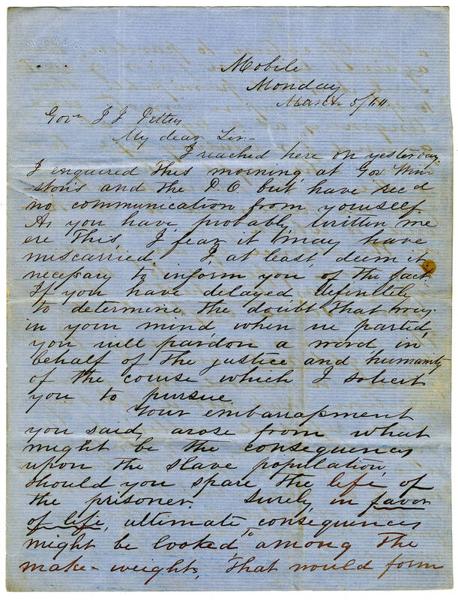 Mobile
Monday
March 5/60
Govr J J Pettus
My dear Sir-
I reached here on yesterday.
I enquired this morning at Gov Win
ston's and the P.O. but have rec'd
no communication from yourself
As you have, probably, written me
ere this, I fear it may have
miscarried. I, at least, deem it
necessary to inform you of the fact.
If you have delayed definitely
to determine the doubt that was
in your mind, when we parted,
you will pardon a word in
behalf of the justice and humanity
of the course which I solicit
you to pursue
Your embarrassment
you said, arose from what
might be the consequences
upon the slave population,
should you spare the life of
the prisoner. Surely, in favor
of life, ultimate consequences
might be looked, among the
make-weights, that would form